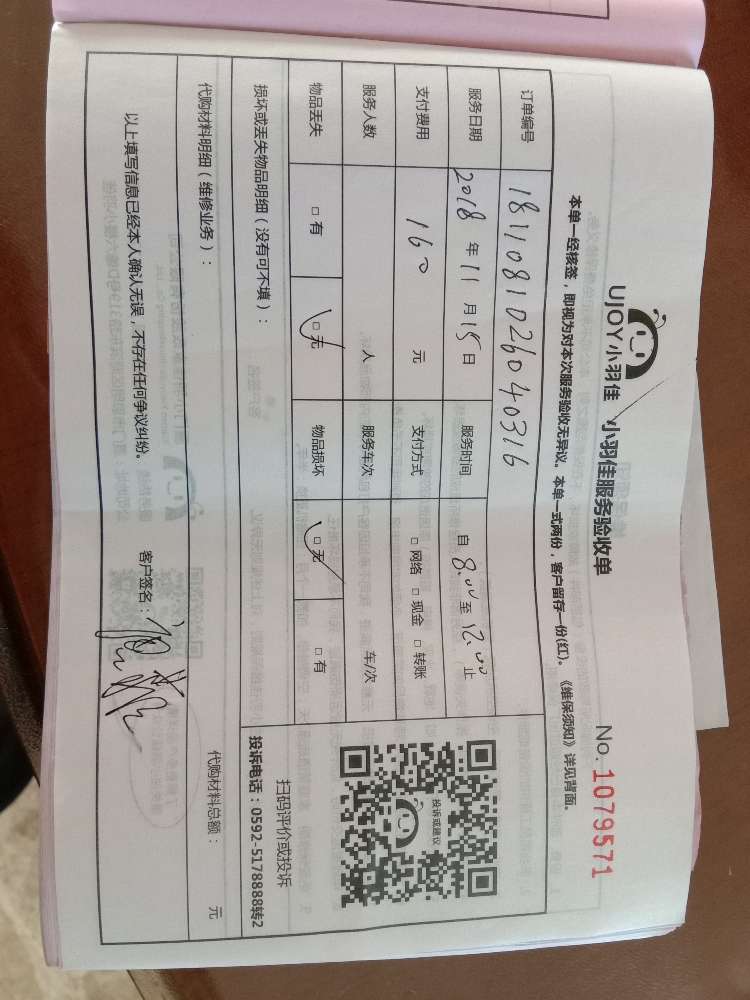 UJOY小羽佳 小羽佳服务验收单
No. 1079571
本单一经核签，即视为对本次服务验收无异议。本单一式两份，客户留存一份(红)。《维保须知》详见背面。
订单编号 1811081026040316
服务日期 2018年11月15日 服务时间 自8:00至12:00止
支付费用 160元 支付方式 □网络 □现金 □转账
服务人数 人 服务车次 车/次
物品丢失 □有 □无 物品损坏 □无 □有
投诉或建议
扫码评价或投诉
投诉电话：0592-5178888转2
损坏或丢失物品明细（没有可不填）：
代购材料明细（维修业务）： 代购材料总额： 元
以上填写信息已经本人确认无误，不存在任何争议纠纷。
客户签名：